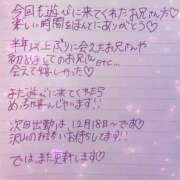 今回も遊びに来てくれたお兄さん方♡
楽しい時間をありがとう♡
半年以上ぶりに会えたお兄さんや
初めましてのお兄さんetc...
会えて嬉しかった♡
また遊びに来てくれたら
めっちゃ喜んじゃいます!!
次回出勤は、12月18日〜です♡
沢山のお誘いお待ちしてます!!
では、また更新します♡